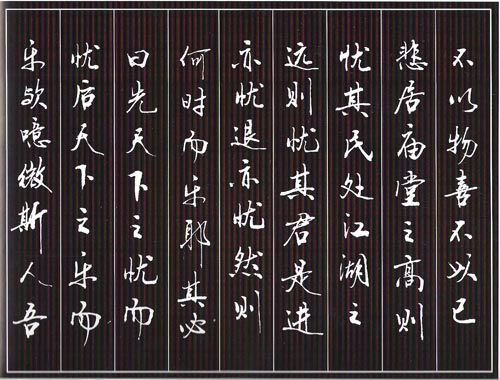 不以物喜不以己
悲居庙堂之高则
忧其民处江湖之
远则忧其君是进
亦忧退亦忧然则
何时而乐耶其必
曰先天下之忧而
忧后天下之乐而
乐欤噫微斯人吾